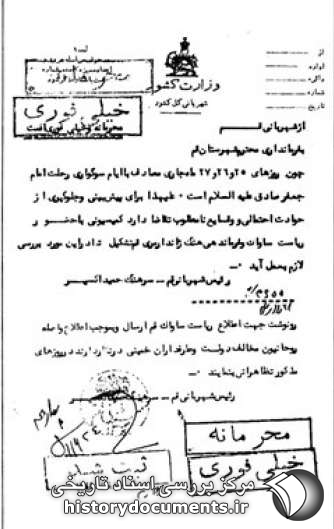 وزارت کشور
شهربانی کل کشور
از
اداره
دائره
شماره
تاریخ
خیلی فوری
محرمانه و خیلی فوری است
از شهربانی قم
بفرمانداری محترم شهرستان قم
چون روزهای ۲۵ و ۲۶ و ۲۷ ماه جاری مصادف با ایام سوگواری رحلت امام
جعفر صادق علیه السلام است علیهذا برای پیش بینی و جلوگیری از
حوادث احتمالی و وقایع نامطلوب تقاضا دارد کمیسیونی با حضور
ریاست ساواک و فرماندهی هنگ ژاندارمری قم تشکیل تا در این مورد بررسی
لازم بعمل آید
رئیس شهربانی قم - سرهنگ حمید اکسیر
رونوشت جهت اطلاع ریاست ساواک قم ارسال و بموجب اطلاع واصله
روحانیون مخالف دولت و طرفداران خمینی در نظر دارند در روزهای
مذکور تظاهراتی بنمایند
رئیس شهربانی قم -
محرمانه
خیلی فوری
ثبت شد
مرکز بررسی اسناد تاریخی
historydocuments.ir